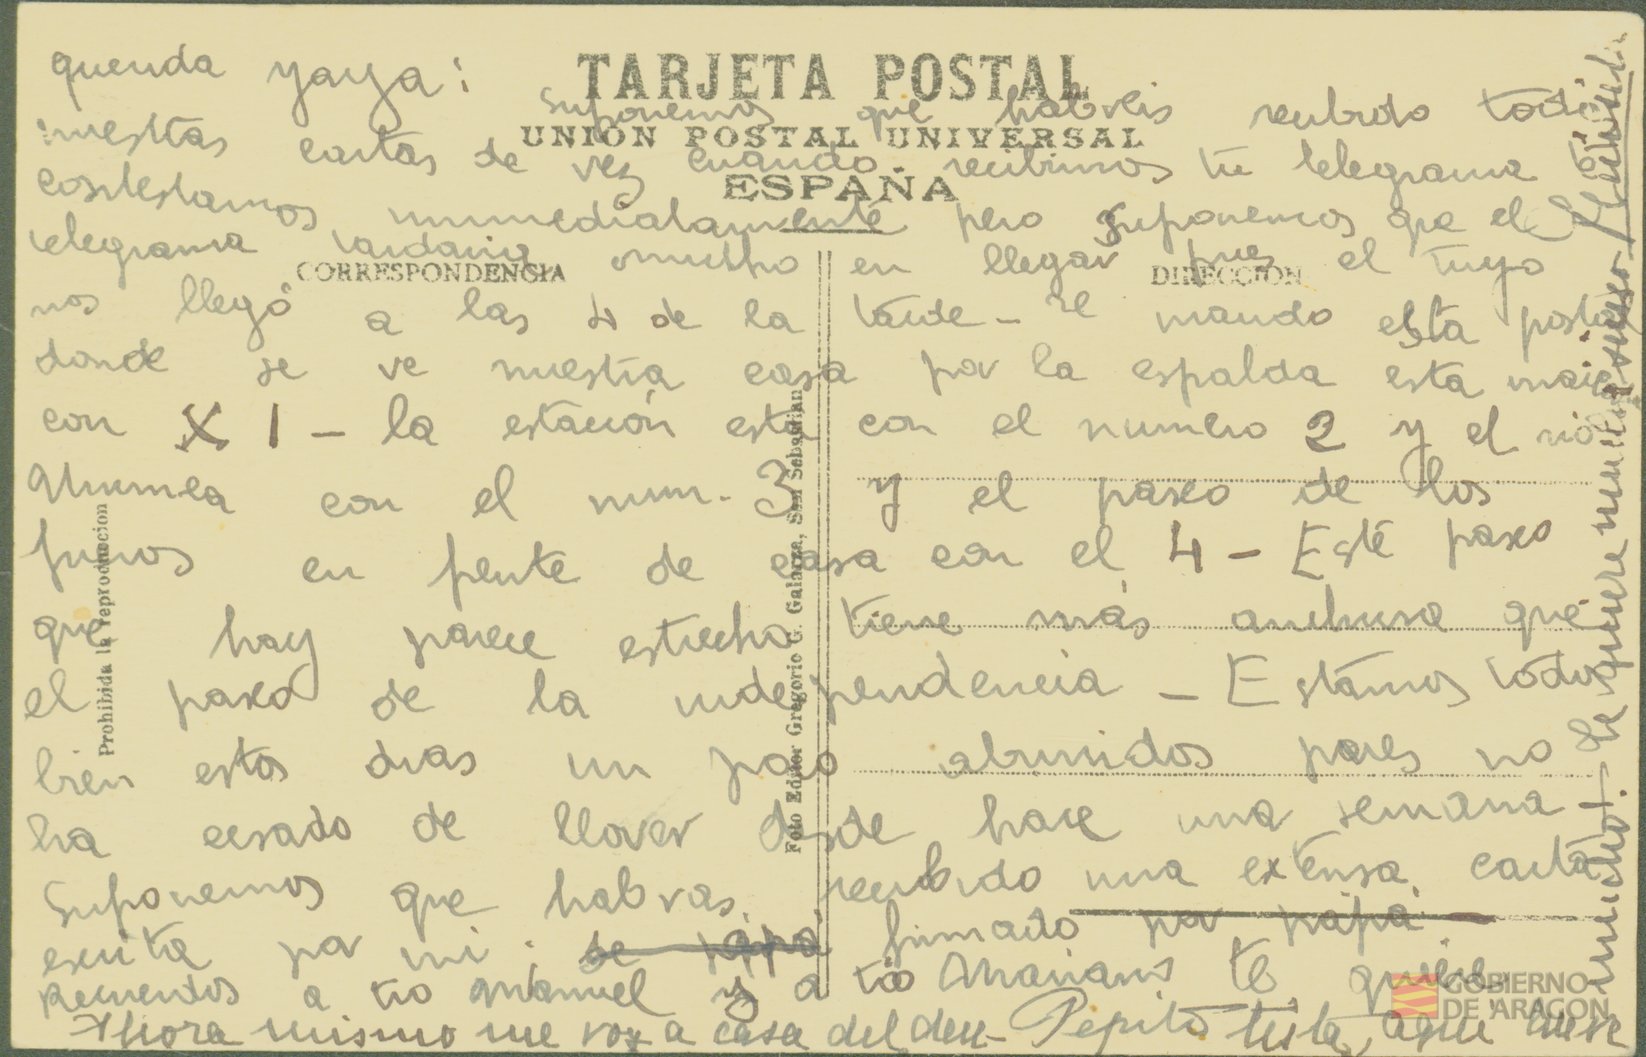 querida yaya:
TARJETA POSTAL
suponemos que habreis recibido todas
UNIÓN POSTAL UNIVERSAL
nuestras cartas de vez cuando. recibimos tu telegrama
ESPAÑA
contestamos immediatamente pero suponemos que el
telegrama tardaria mucho en llegar pues el tuyo
CORRESPONDENCIA
DIRECCIÓN
nos llegó a las 4 de la tarde - Te mando esta postal
donde se ve nuestra casa por la espalda esta marcada
con X 1 - la estación está con el numero 2 y el rio
Urumea con el num. 3 y el paseo de los
fueros en frente de casa con el 4 - Este paseo
que hay parece estrecho tiene más anchura que
el paseo de la independencia - Estamos todos
bien estos dias un poco aburridos pues no
ha cesado de llover desde hace una semana
Suponemos que habras recibido una extensa carta
escrita por mi. de papá firmado por papá.
Recuerdos a tio Manuel y a tio Mariano te quiere
Ahora mismo me voy a casa del den-
Pepito
tista, aqui llueve
mucho!. Te quiere mucho
Prohibida la reproducción
Foto Editor Gregorio G. Galarza, San Sebastian
GOBIERNO
DE ARAGON